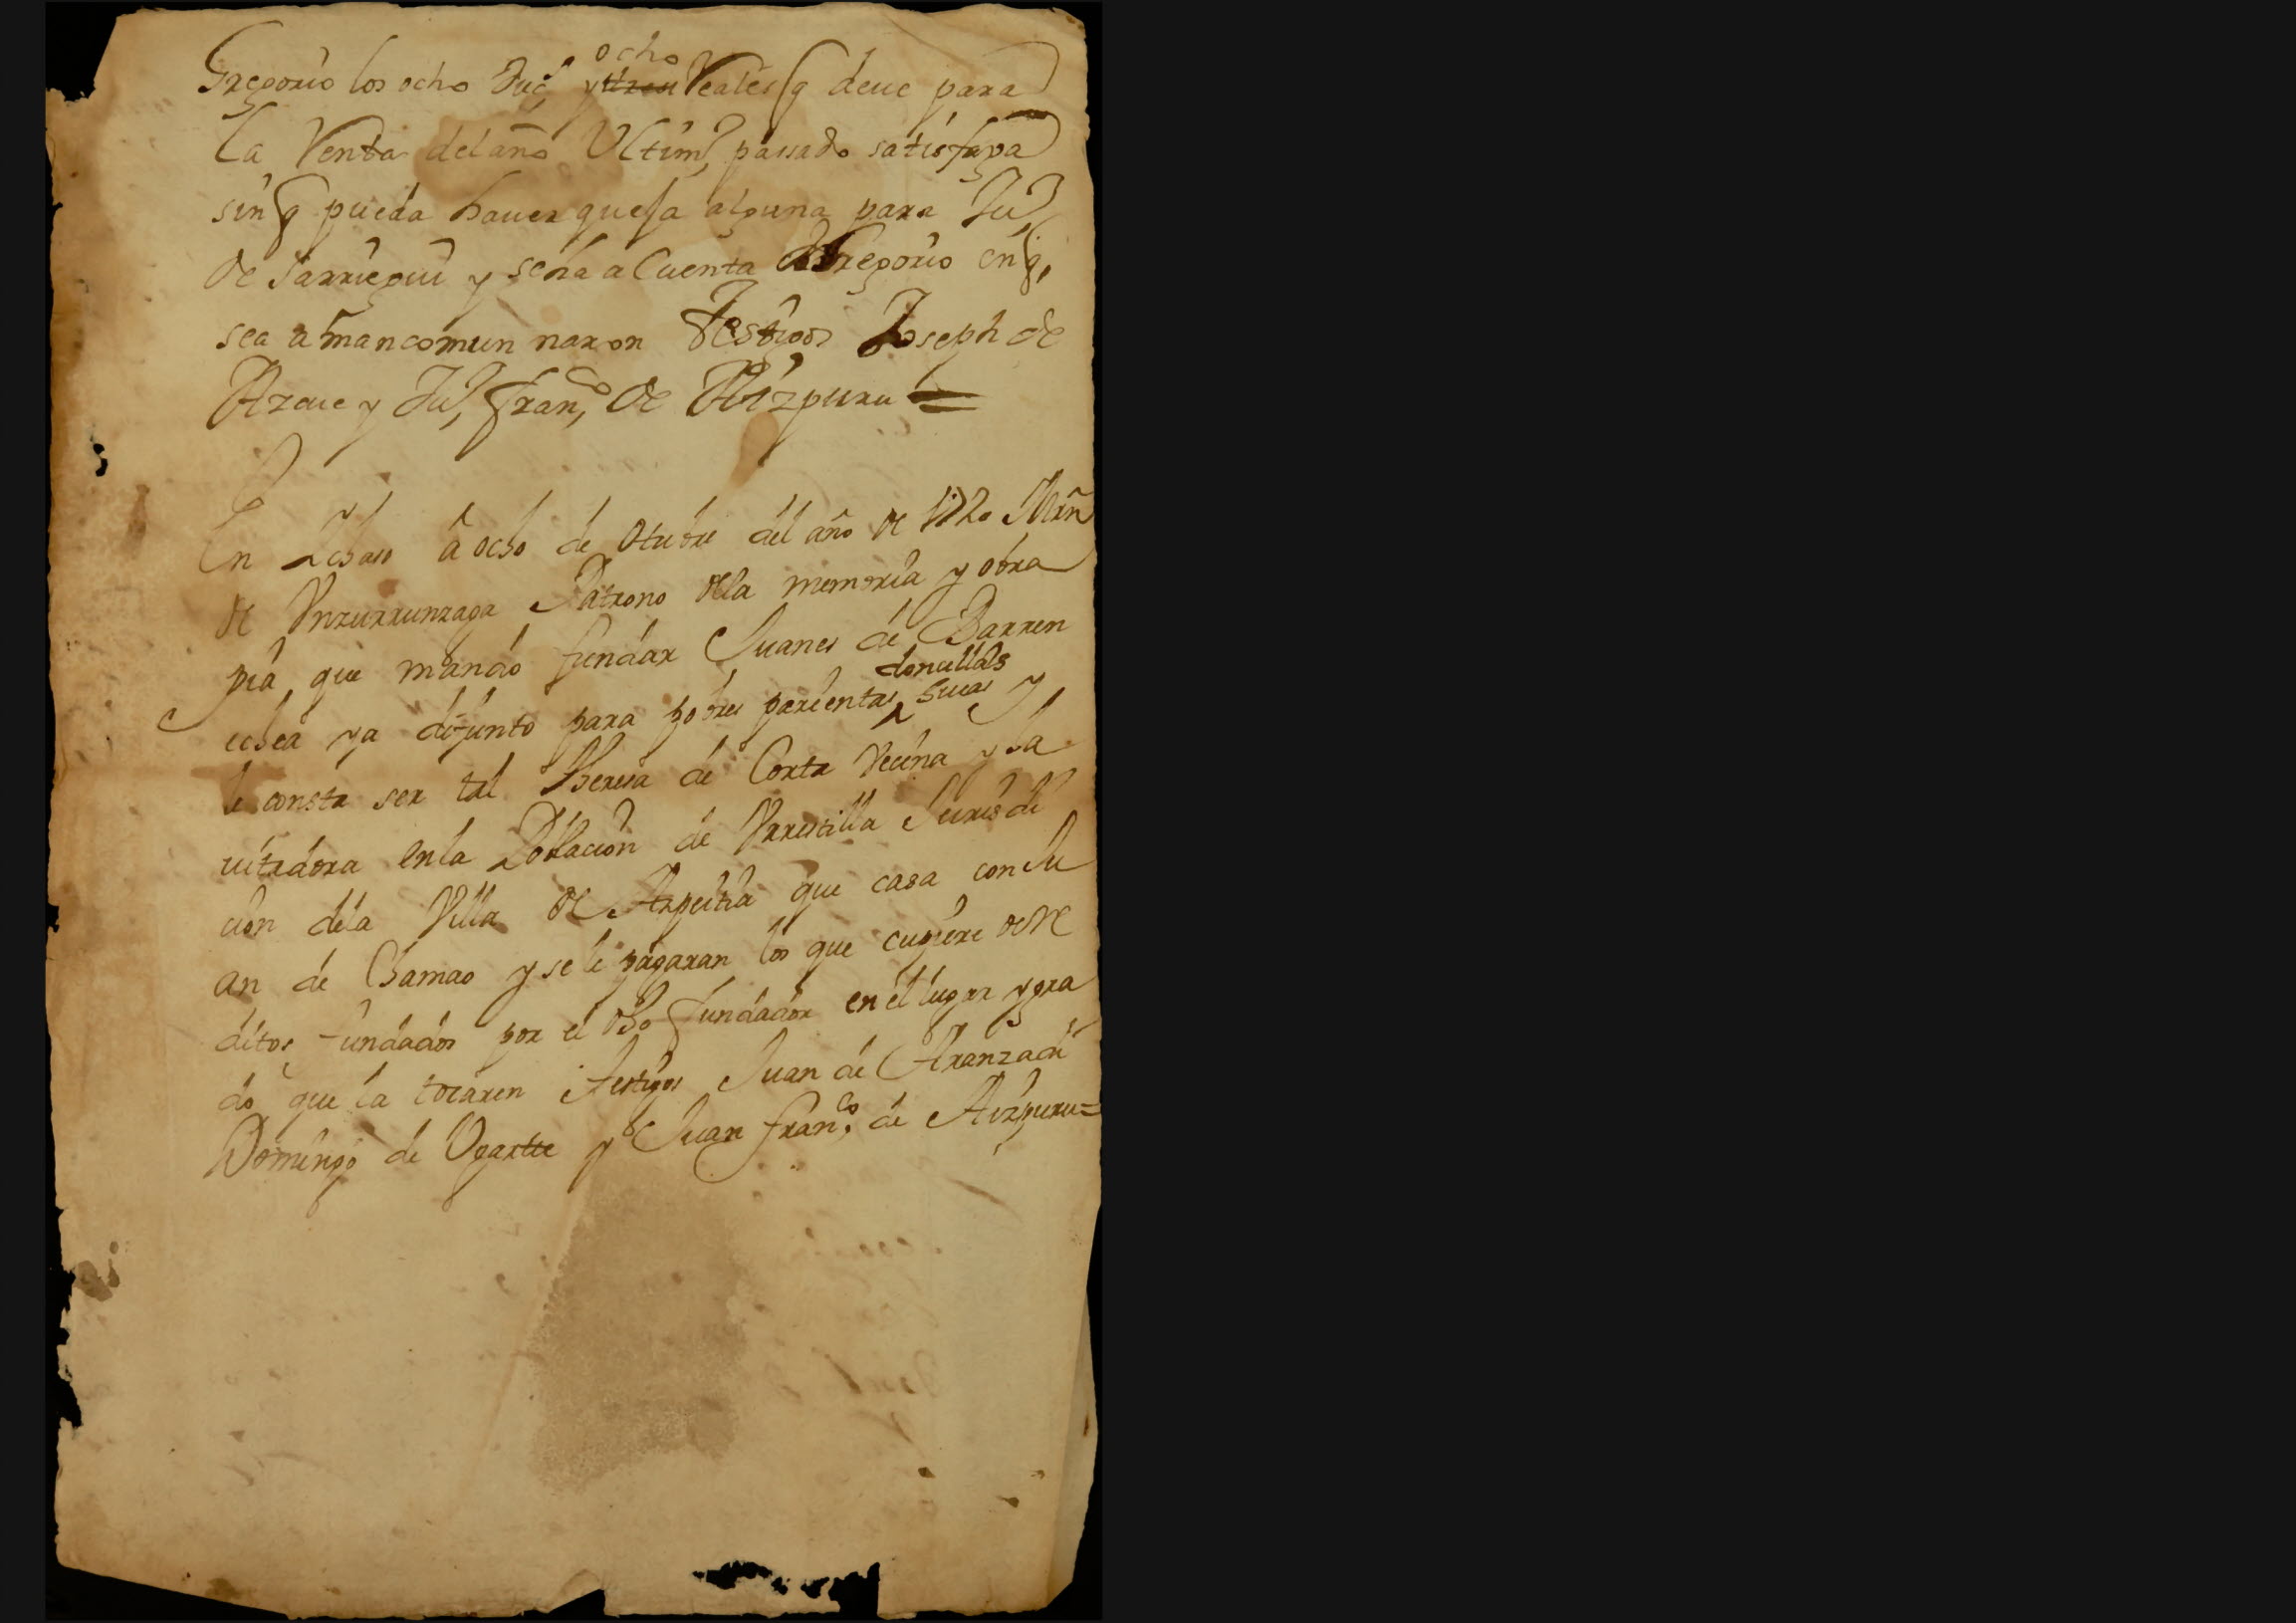 Gregorio los ocho Duc.s y tres ocho Reales q deue para
la Renta del año Ultim.o passado satisfaga
sin q pueda hauer quessa alguna para Ju.o
de Sarriegui y sera a Cuenta de Gregorio en q.
sea amancomunnaron Testigos Joseph de
Azcue y Ju.o Fran.co de Aizpuru =
En Ichaso â ocho de Otubre del año de 1720 Mrn
de Vnzurrunzaga Patrono de la memoria y obra
pia que mando fundar Juanes de Barren
echea ya difunto para pobres parientas donzellas suias y
le consta ser tal Theresa de Corta Vecina y ha
uitadora en la Poblacion de Vrrestilla Jurisdi
cion de la Villa de Azpeitia que casa con Ju
an de Chamao y se le pagaran los que cupiere de Re
ditos fundados por el dho fundador en el lugar y gra
do que la tocaren Testigos Juan de Aranzadi
Domingo de Ugartte y Juan Fran.co de Aizpuru =